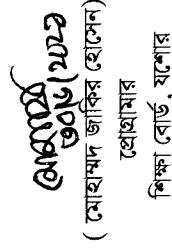 ৩০/৮/২০২৩
( মোহাম্মদ জাকির হোসেন)
প্রোগ্রামার
শিক্ষা বোর্ড, যশোর